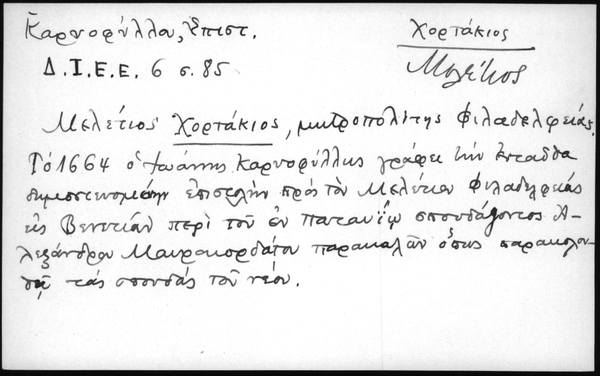 Καρυοφύλλου, Ἐπιστ.
Χορτάκιος
Δ.Ι.Ε.Ε. 6 σ. 85
Μελέτιος
Μελέτιος Χορτάκιος, μητροπολίτης Φιλαδελφείας.
Τό 1664 ὁ Ἰωάννης Καρυοφύλλης γράφει τήν ἐνταῦθα
δημοσιευομένην ἐπιστολήν πρός τόν Μελέτιον Φιλαδελφείας
εἰς Βενετίαν περί τοῦ ἐν Παταυΐῳ σπουδάζοντος Ἀ-
λεξάνδρου Μαυροκορδάτου παρακαλῶν ὅπως παρακολου-
θῇ τάς σπουδάς τοῦ νέου.